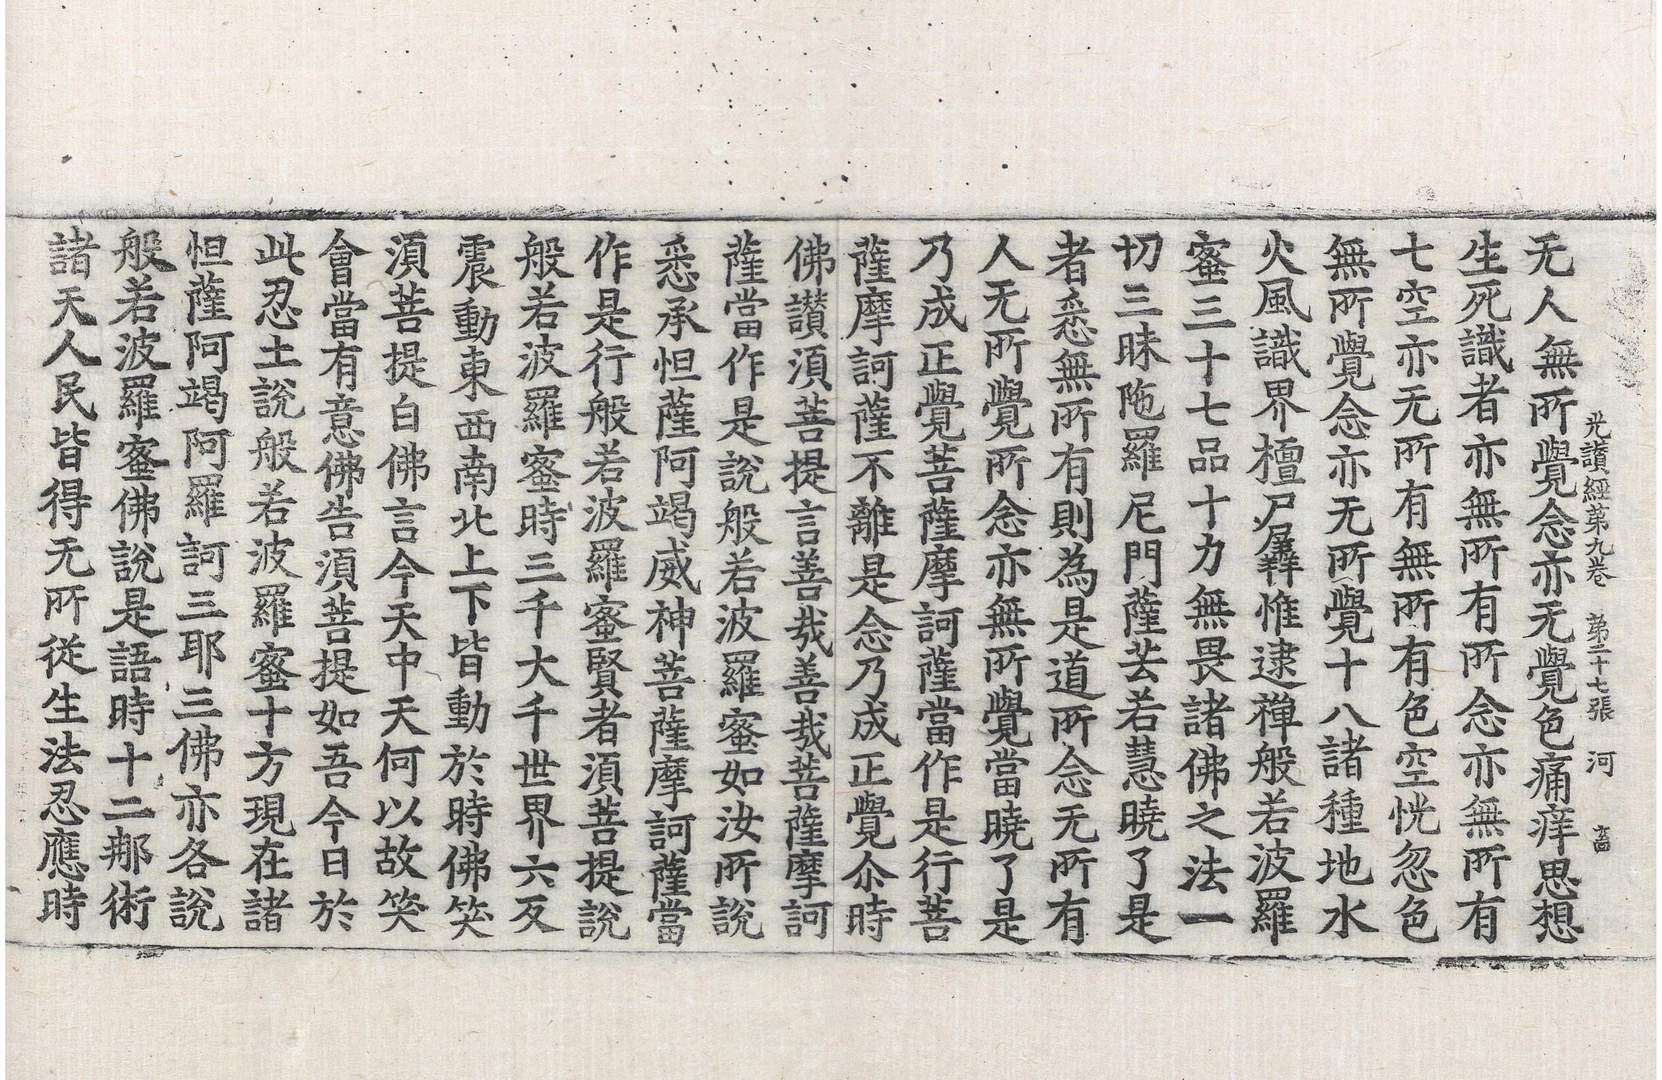 光讃經第九卷 第二十七張 河 畜
无人無所覺念亦无覺色痛痒思想
生死識者亦無所有所念亦無所有
七空亦无所有無所有色空恍忽色
無所覺念亦无所覺十八諸種地水
火風識界檀尸羼惟逮禅般若波羅
蜜三十七品十力無畏諸佛之法一
切三昧陁羅尼門薩芸若慧曉了是
者悉無所有則為是道所念无所有
人无所覺所念亦無所覺當曉了是
乃成正覺菩薩摩訶薩當作是行菩
薩摩訶薩不離是念乃成正覺尒時
佛讃湏菩提言善㢤善㢤菩薩摩訶
薩當作是說般若波羅蜜如汝所說
悉承怛薩阿竭威神菩薩摩訶薩當
作是行般若波羅蜜賢者湏菩提說
般若波羅蜜時三千大千世界六反
震動東西南北上下皆動於時佛笑
湏菩提白佛言今天中天何以故笑
會當有意佛告湏菩提如吾今日於
此忍土說般若波羅蜜十方現在諸
怛薩阿竭阿羅訶三耶三佛亦各說
般若波羅蜜佛說是語時十二那術
諸天人民皆得无所從生法忍應時